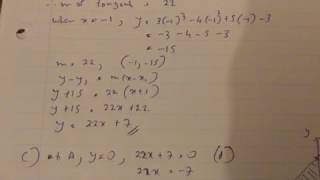 ∴ m of tangent, 22
when x = -1, y = 3(-1)³ - 4(-1)² + 5(-1) - 3
= -3 - 4 - 5 - 3
= -15
m = 22, (-1, -15)
y - y₁ = m(x - x₁)
y + 15 = 22(x + 1)
y + 15 = 22x + 22
y = 22x + 7
C) at A, y = 0, 22x + 7 = 0 (1)
22x = -7